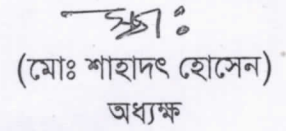 স্বাঃ
(মোঃ শাহাদৎ হোসেন)
অধ্যক্ষ